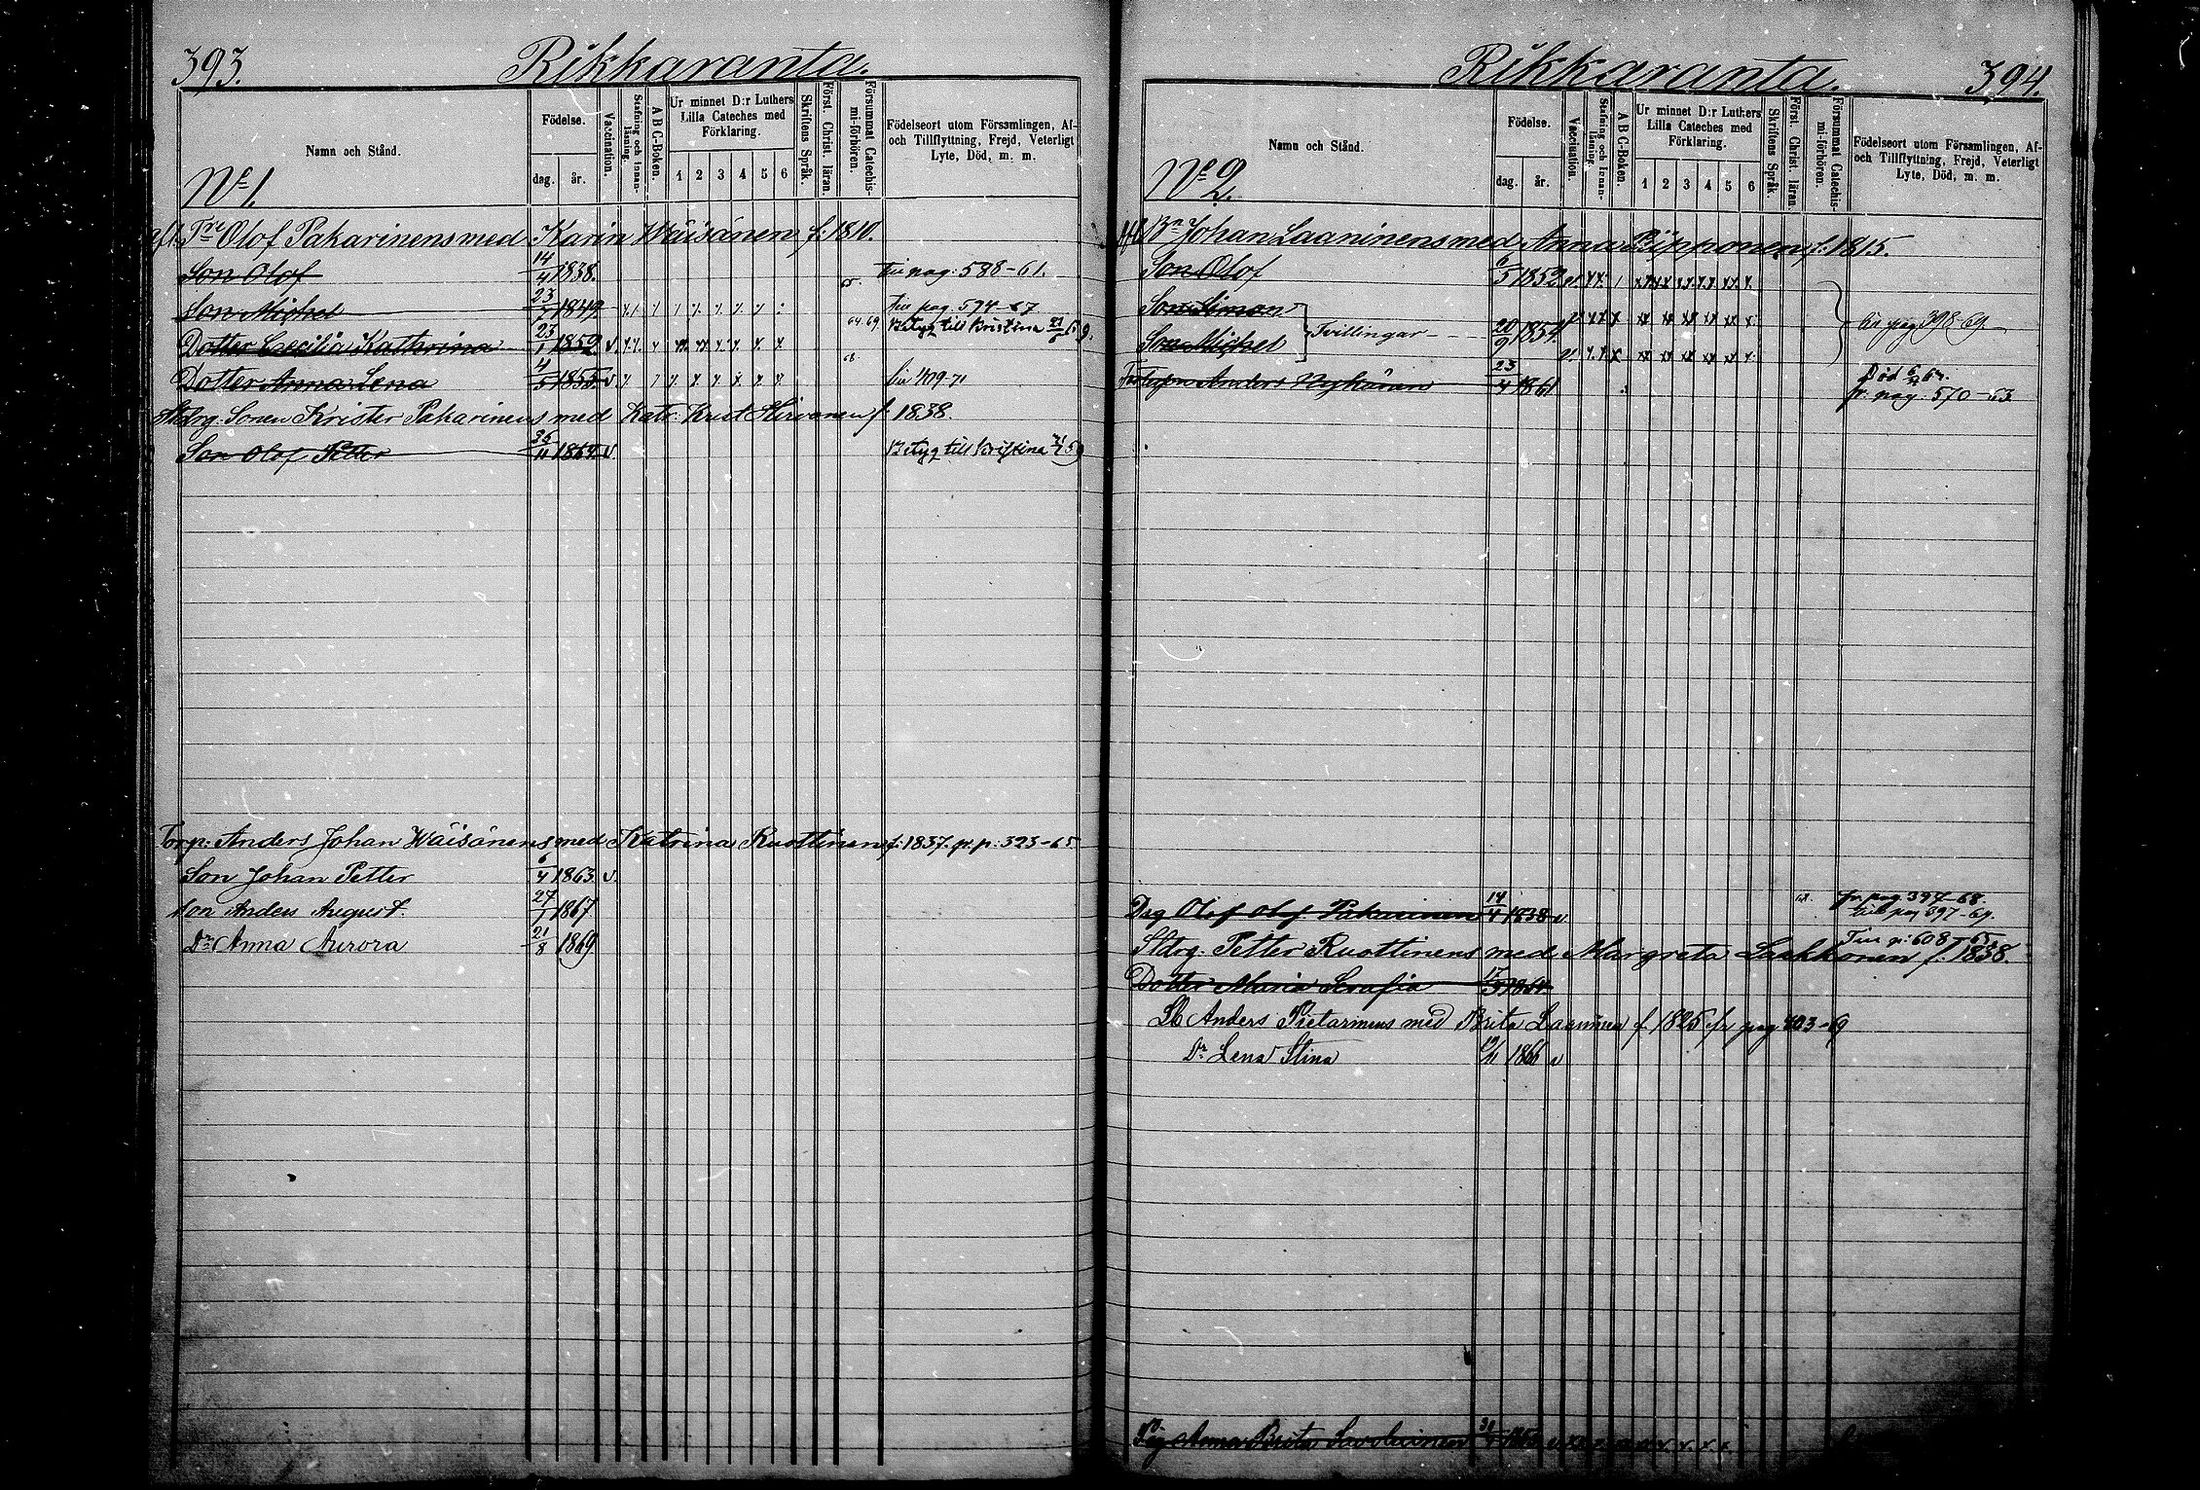 393. Rikkaranta.
Namn och Stånd.
Födelse.
dag. år.
Vaccination.
Stafning och Innan-läsning.
A B C-Boken.
Ur minnet D:r Luthers Lilla Cateches med Förklaring.
1 2 3 4 5 6
Skriftens Språk.
Först. Christ. läran.
Försummat Catechis-mi-förhören.
Födelseort utom Församlingen, Af-
och Tillflyttning, Frejd, Veterligt
Lyte, Död, m. m.
No 1.
Olof Pakarinens med Karin Wäisänen f. 1810.
Son Olof 14/4 1838. 65. pag. 588-61.
Son Michel 1849 pag 594-67
Dotter Cæcilia Kathrina 23/1 1852 v 64.69 Betyg till Kristina
Dotter Anna Lena 4/5 1855 v 409-71
Sonen Krister Pakarinens med Katr. Krist Hirvonen f. 1838.
Son Olof Petter 1864 v Betyg till Kristina
Torp. Anders Johan Wäisänens med Katrina Ruottinen f. 1837. fr. p. 323-65
Son Johan Petter 6/4 1863 v.
Son Anders August. 27/1 1867
Dr Anna Aurora 21/8 1869
Rikkaranta. 394.
Namn och Stånd.
Födelse.
dag. år.
Vaccination.
Stafning och Innan-läsning
A B C-Boken.
Ur minnet D:r Luthers
Lilla Cateches med
Förklaring.
1 2 3 4 5 6
Skriftens Språk
Först. Christ. läran.
Försummat Catechis-mi-förhören.
Födelseort utom Församlingen, Af-
och Tillflyttning, Frejd, Veterligt
Lyte, Död, m. m.
No 2.
Johan Laaninens med Anna Pipponen f. 1815.
Son Olof 6/5 1852
Son Simon
Tvillingar 20/9 1854. pag 398-69
Son Michel
Anders Nykänen 23/4 1861 Död
fr. pag. 570-63
Drg Olof Olof Pakarinen 14/4 1838 v 68 fr. pag. 397-68.
till pag 397-69.
p. 608-65.
Petter Ruottinens med Margreta Laakkonen f. 1838.
Dotter Maria Serafia 1864
Anders Pietarinens med Brita Laaninen f. 1825 fr pag 403-69
Dr Lena Stina 1866 v
Pig Anna Brita Savolainen